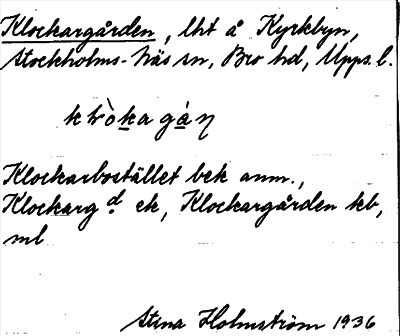 Klockargården, lht å Kyrkbyn,
Stockholms-Näs sn, Bro hd, Upps. l.
Klockarbostället bek anm.,
Klockargd ek, Klockargården kb,
ml
Stina Holmström 1936